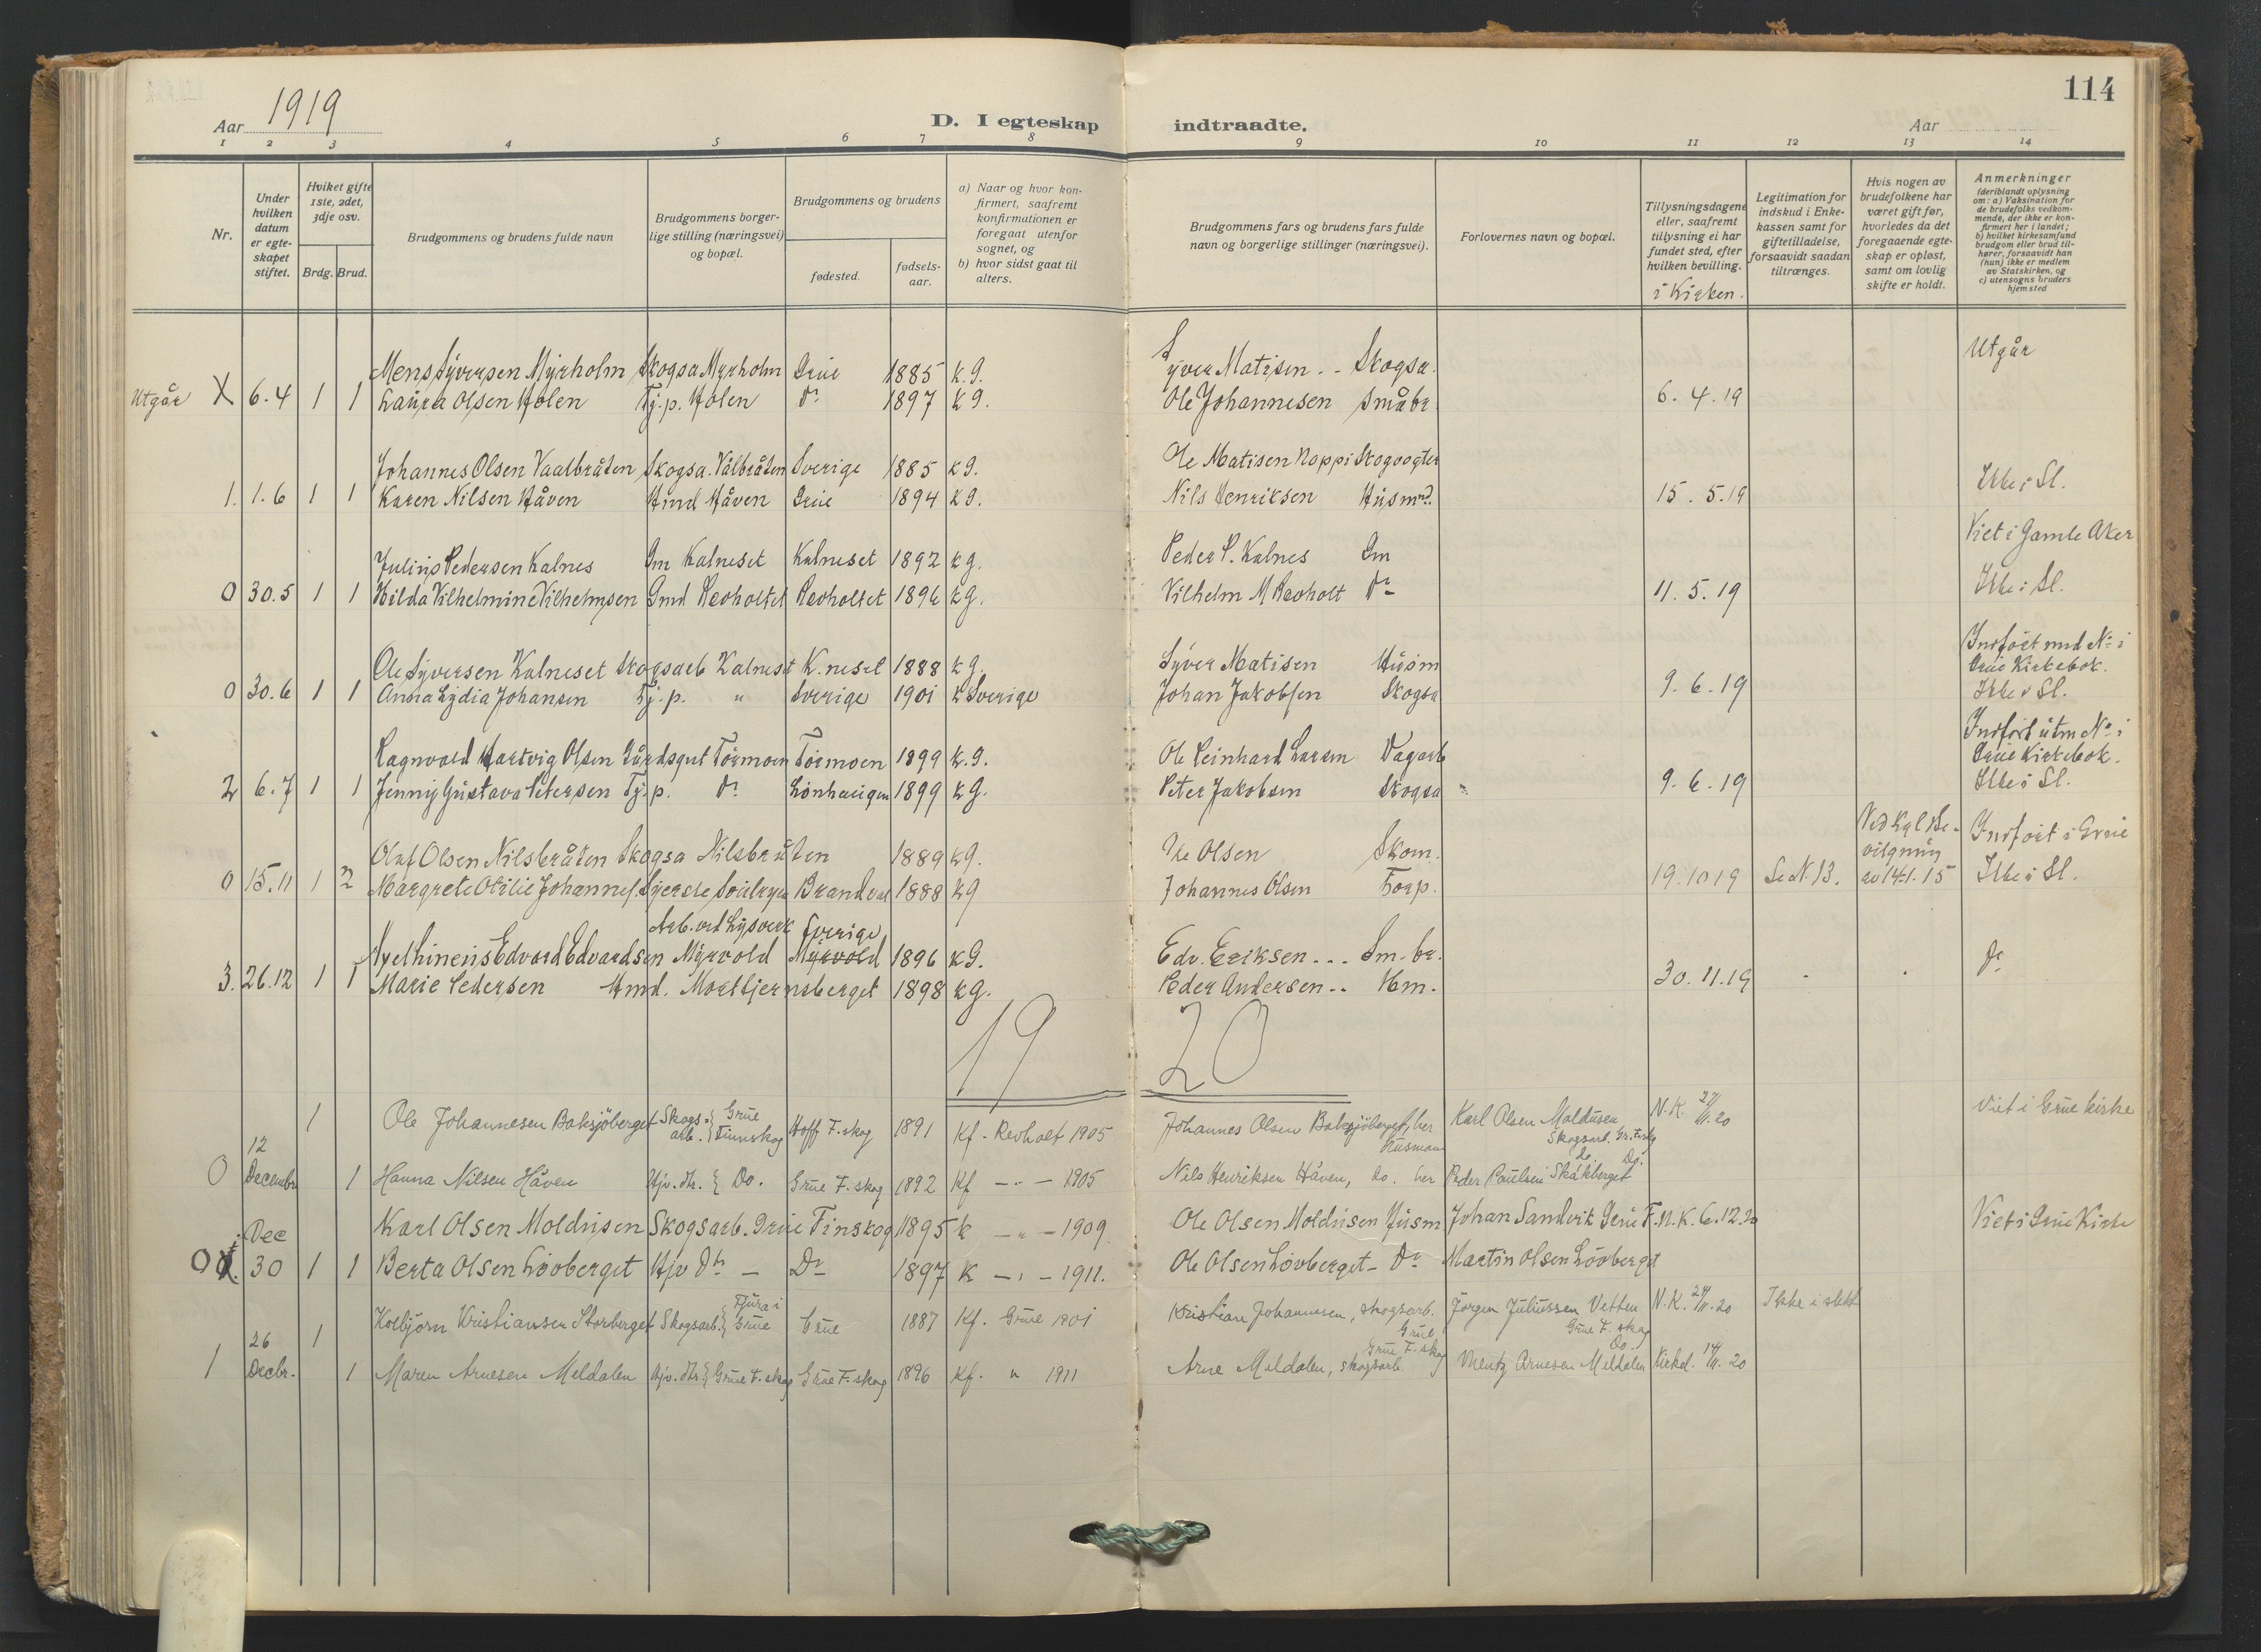 114
Aar 1919
D. I egteskap indtraadte.
Aar
1 2 3 4 5 6 7 8 9 10 11 12 13 14
Nr.
Under hvilken datum er egteskapet stiftet.
Hviket gifte 1ste, 2det, 3dje osv.
Brdg. Brud.
Brudgommens og brudens fulde navn
Brudgommens borgerlige stilling (næringsvei) og bopæl.
Brudgommens og brudens
fødested.
fødselsaar.
a) Naar og hvor konfirmert, saafremt konfirmationen er foregaat utenfor sognet, og
b) hvor sidst gaat til alters.
Brudgommens fars og brudens fars fulde navn og borgerlige stillinger (næringsvei).
Forlovernes navn og bopæl.
Tillysningsdagene eller, saafremt tillysning ei har fundet sted, efter hvilken bevilling.
i Kirken.
Legitimation for indskud i Enkekassen samt for giftetilladelse, forsaavidt saadan tiltrænges.
Hvis nogen av brudefolkene har været gift før, hvorledes da det foregaaende egteskap er opløst, samt om lovlig skifte er holdt.
Anmerkninger (deriblandt oplysning om: a) Vaksination for de brudefolks vedkommende, der ikke er konfirmert her i landet; b) hvilket kirkesamfund brudgom eller brud tilhører, forsaavidt han (hun) ikke er medlem av Statskirken, og c) utensogns bruders hjemsted
Mens Syversen Myrholm Skogsa Myrholm Grue 1885 K.G. Syver Matisen .. Skogsa. Utgår
Utgår X 6.4 1 1 Laura Olsen Holen Tj.p. Holen do 1897 K G. Ole Johannesen Småbr 6.4.19
Johannes Olsen Vaalbråten Skogsa. Vålbråten Sverige 1885 K G. Ole Matisen Noppi Skogvogter
1. 1.6 1 1 Karen Nilsen Håven Hmd Håven Grue 1894 K G. Nils Henriksen Husmd. 15.5.19 Ikke i Sl.
Viet i Gamle Aker
Julius Pedersen Kalnes Gm Kalneset Kalneset 1892 K G. Peder P. Kalnes Gm
0 30.5 1 1 Hilda Vilhelmine Vilhelmsen Gmd Revholtet Revholtet 1896 K G. Vilhelm M Revholt do 11.5.19 Ikke i Sl.
Indført med No i
Ole Syversen Kalneset Skogsarb Kalneset K.neset 1888 K G. Syver Matisen Husm Grue Kirkebok.
0 30.6 1 1 Anna Lydia Johansen Tj.p. " Sverige 1901 K Sverige Johan Jakobsen Skogsa 9.6.19 Ikke i Sl.
Indført uten No i
Ragnvald Hartvig Olsen Gårdsgut Tørmoen Tørmoen 1899 K.G. Ole Reinhard Larsen Vagarb Grue Kirkebok.
2 6.7 1 1 Jenny Gustava Petersen Tj.p. do Lønhaugen 1899 K G. Peter Jakobsen Skogsa 9.6.19 Ikke i Sl.
Ved Kgl Bevilgning av 14-1.15
Olaf Olsen Nilsbråten Skogsa Nilsbråten 1889 K G. Ole Olsen Skom. Indført i Grue
0 15.11 1 2 Margrete Otilie Johannes. Brandval 1888 K G Johannes Olsen Forp. 19.10 19 Se N. 13. Ikke i Sl.
Arb. ved Lysverk Sverige
Edvard Edvardsen Myrvold Myrvold 1896 K G. Edv. Eriksen ... Sm.br.
3. 26.12 1 1 Marie Pedersen Hmd. Mortbjernsberget 1898 K G. Peder Andersen .. Hm. 30.11.19 - - do
19 20
1 Ole Johannesen Baksjöberget Skogsarb. Grue Finnskog Hoff F.skog 1891 Kf. Revholt 1905 Johannes Olsen Baksjöberget, her Husmann Karl Olsen Moldusen Skogsarb. Gr. F.skg N.K. 27/11.20 Viet i Grue kirke
0 12 Decembr 1 Hanna Nilsen Håven Hjv. dtr. Do. Grue F.skog 1892 Kf — " — 1905 Nils Henriksen Håven, do. her Peder Paulsen Skåkberget do. Do.
Dec Karl Olsen Moldusen Skogsarb. Grue Finskog 1895 K — " — 1909. Ole Olsen Moldusen Husm Johan Sandvik Grue F. N.K. 6.12.20 Viet i Grue Kirke
0 30 1 1 Berta Olsen Lövberget Hjv dtr — Do 1897 K — " — 1911. Ole Olsen Lövberget - do Martin Olsen Lövberget
Kolbjörn Kristiansen Storberget Skogsarb. Tjura i Grue Grue 1887 Kf. Grue 1901 Kristian Johannesen, skogsarb. Grue Jörgen Juliussen Vetten Grue F. skog N.K. 28/11.20 Ikke i slekt
1 26 Decbr. 1 1 Maren Arnesen Meldalen Hjv. dtr. Grue F.skog Grue F.skog 1896 Kf. " 1911 Arne Meldalen, skogsarb. Grue F.skog Mentz Arnesen Meldalen Do. Kirkel. 14/11.20